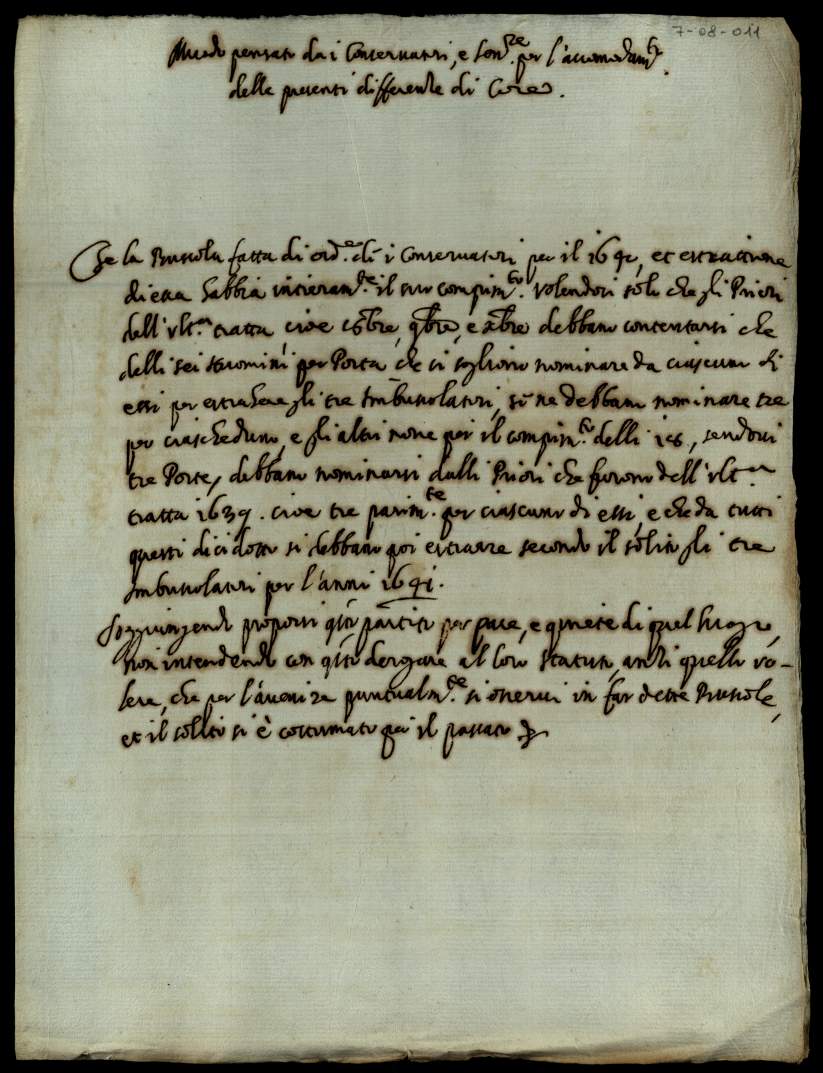 7-08-011
Modo pensato da i Conservatori, e Sen.re per l'accomodam.to
delle presenti differenze di Core.
Che la Bussola fatta di ord.e di i Conservatori per il 1640, et estrattione
di essa habbia interam.te il suo compim.to volendosi solo che gli Priori
dell'ult.a tratta cioè 8bre, 9bre, e Xbre debbano contentarsi che
delli sei huomini per Porta che si sogliono nominare da ciascun di
essi per estrahere gli tre Imbussolatori, si ne debbano nominare tre
per ciascheduno, e gli altri nove per il compim.to delli 18, sendoci
tre Porte, debbano nominarsi dalli Priori che furono dell'ult.a
tratta 1639. cioè tre parim.te per ciascuno di essi, e che da tutti
questi dicidotto si debbano poi estrarre secondo il solito gli tre
Imbussolatori per l'anni 1641.
Soggiungendo proporsi q.sto partito per pace, e quiete di quel luogo,
non intendendo con q.sto derogare al loro Statuto, anzi quello vo-
lere, che per l'avenire puntualm.te si osservi in far dette Bussole,
et il solito si è costumato per il passato